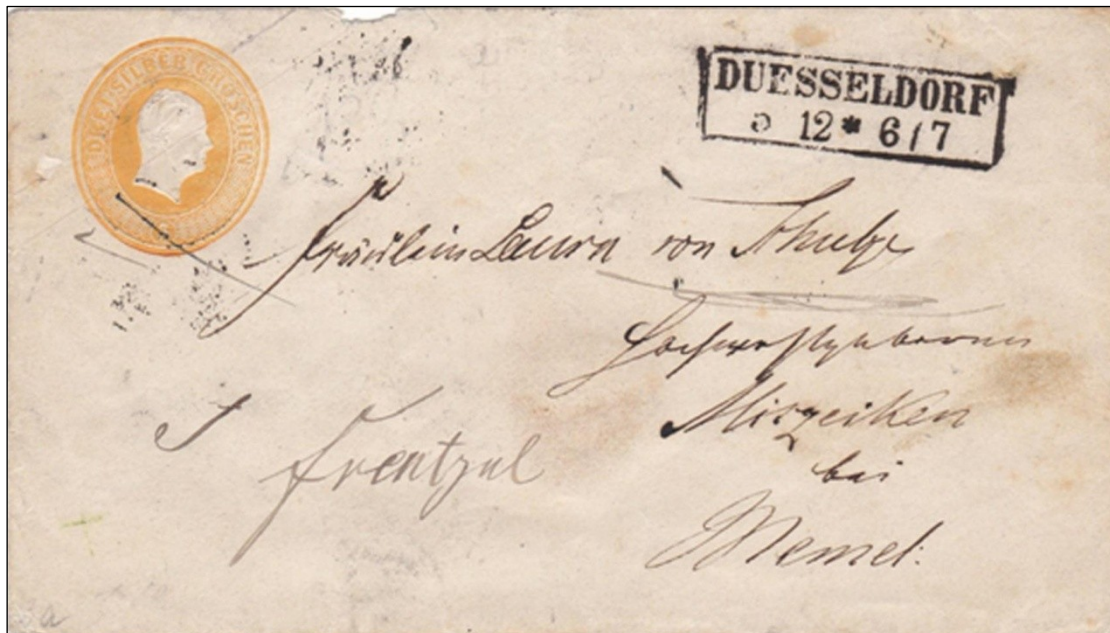 DREI SILBER GROSCHEN
DUESSELDORF
5 12 * 6/7
Fräulein Laura von Schulze
Miszeiken
bei
Memel.
Frentzel
a